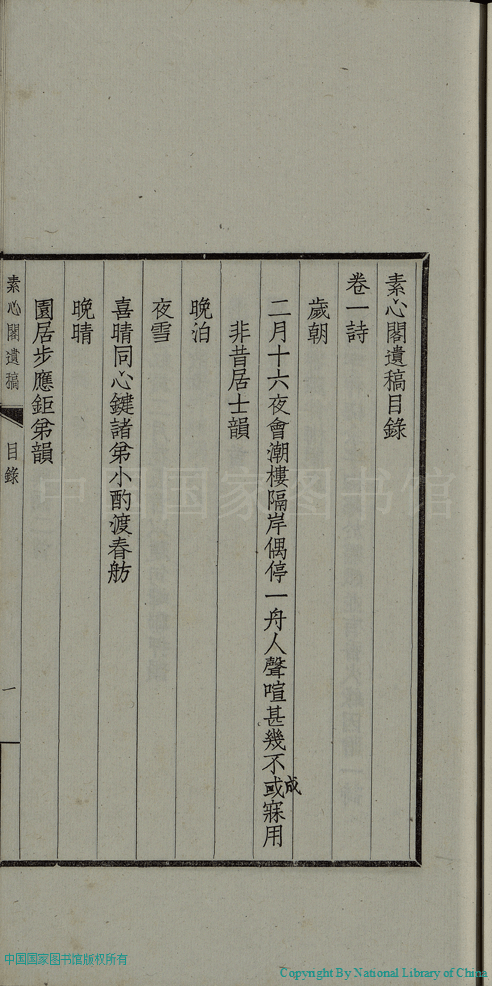 素心閣遺稿目錄
卷一詩
歲朝
二月十六夜會潮樓隔岸偶停一舟人聲喧甚幾不或寐用
成
非昔居士韻
晚泊
夜雪
喜晴同心鍵諸弟小酌渡春舫
晚晴
園居步應鉅弟韻
素心閣遺稿
目錄
一
中国国家图书馆
中国国家图书馆版权所有
Copyright By National Library of China